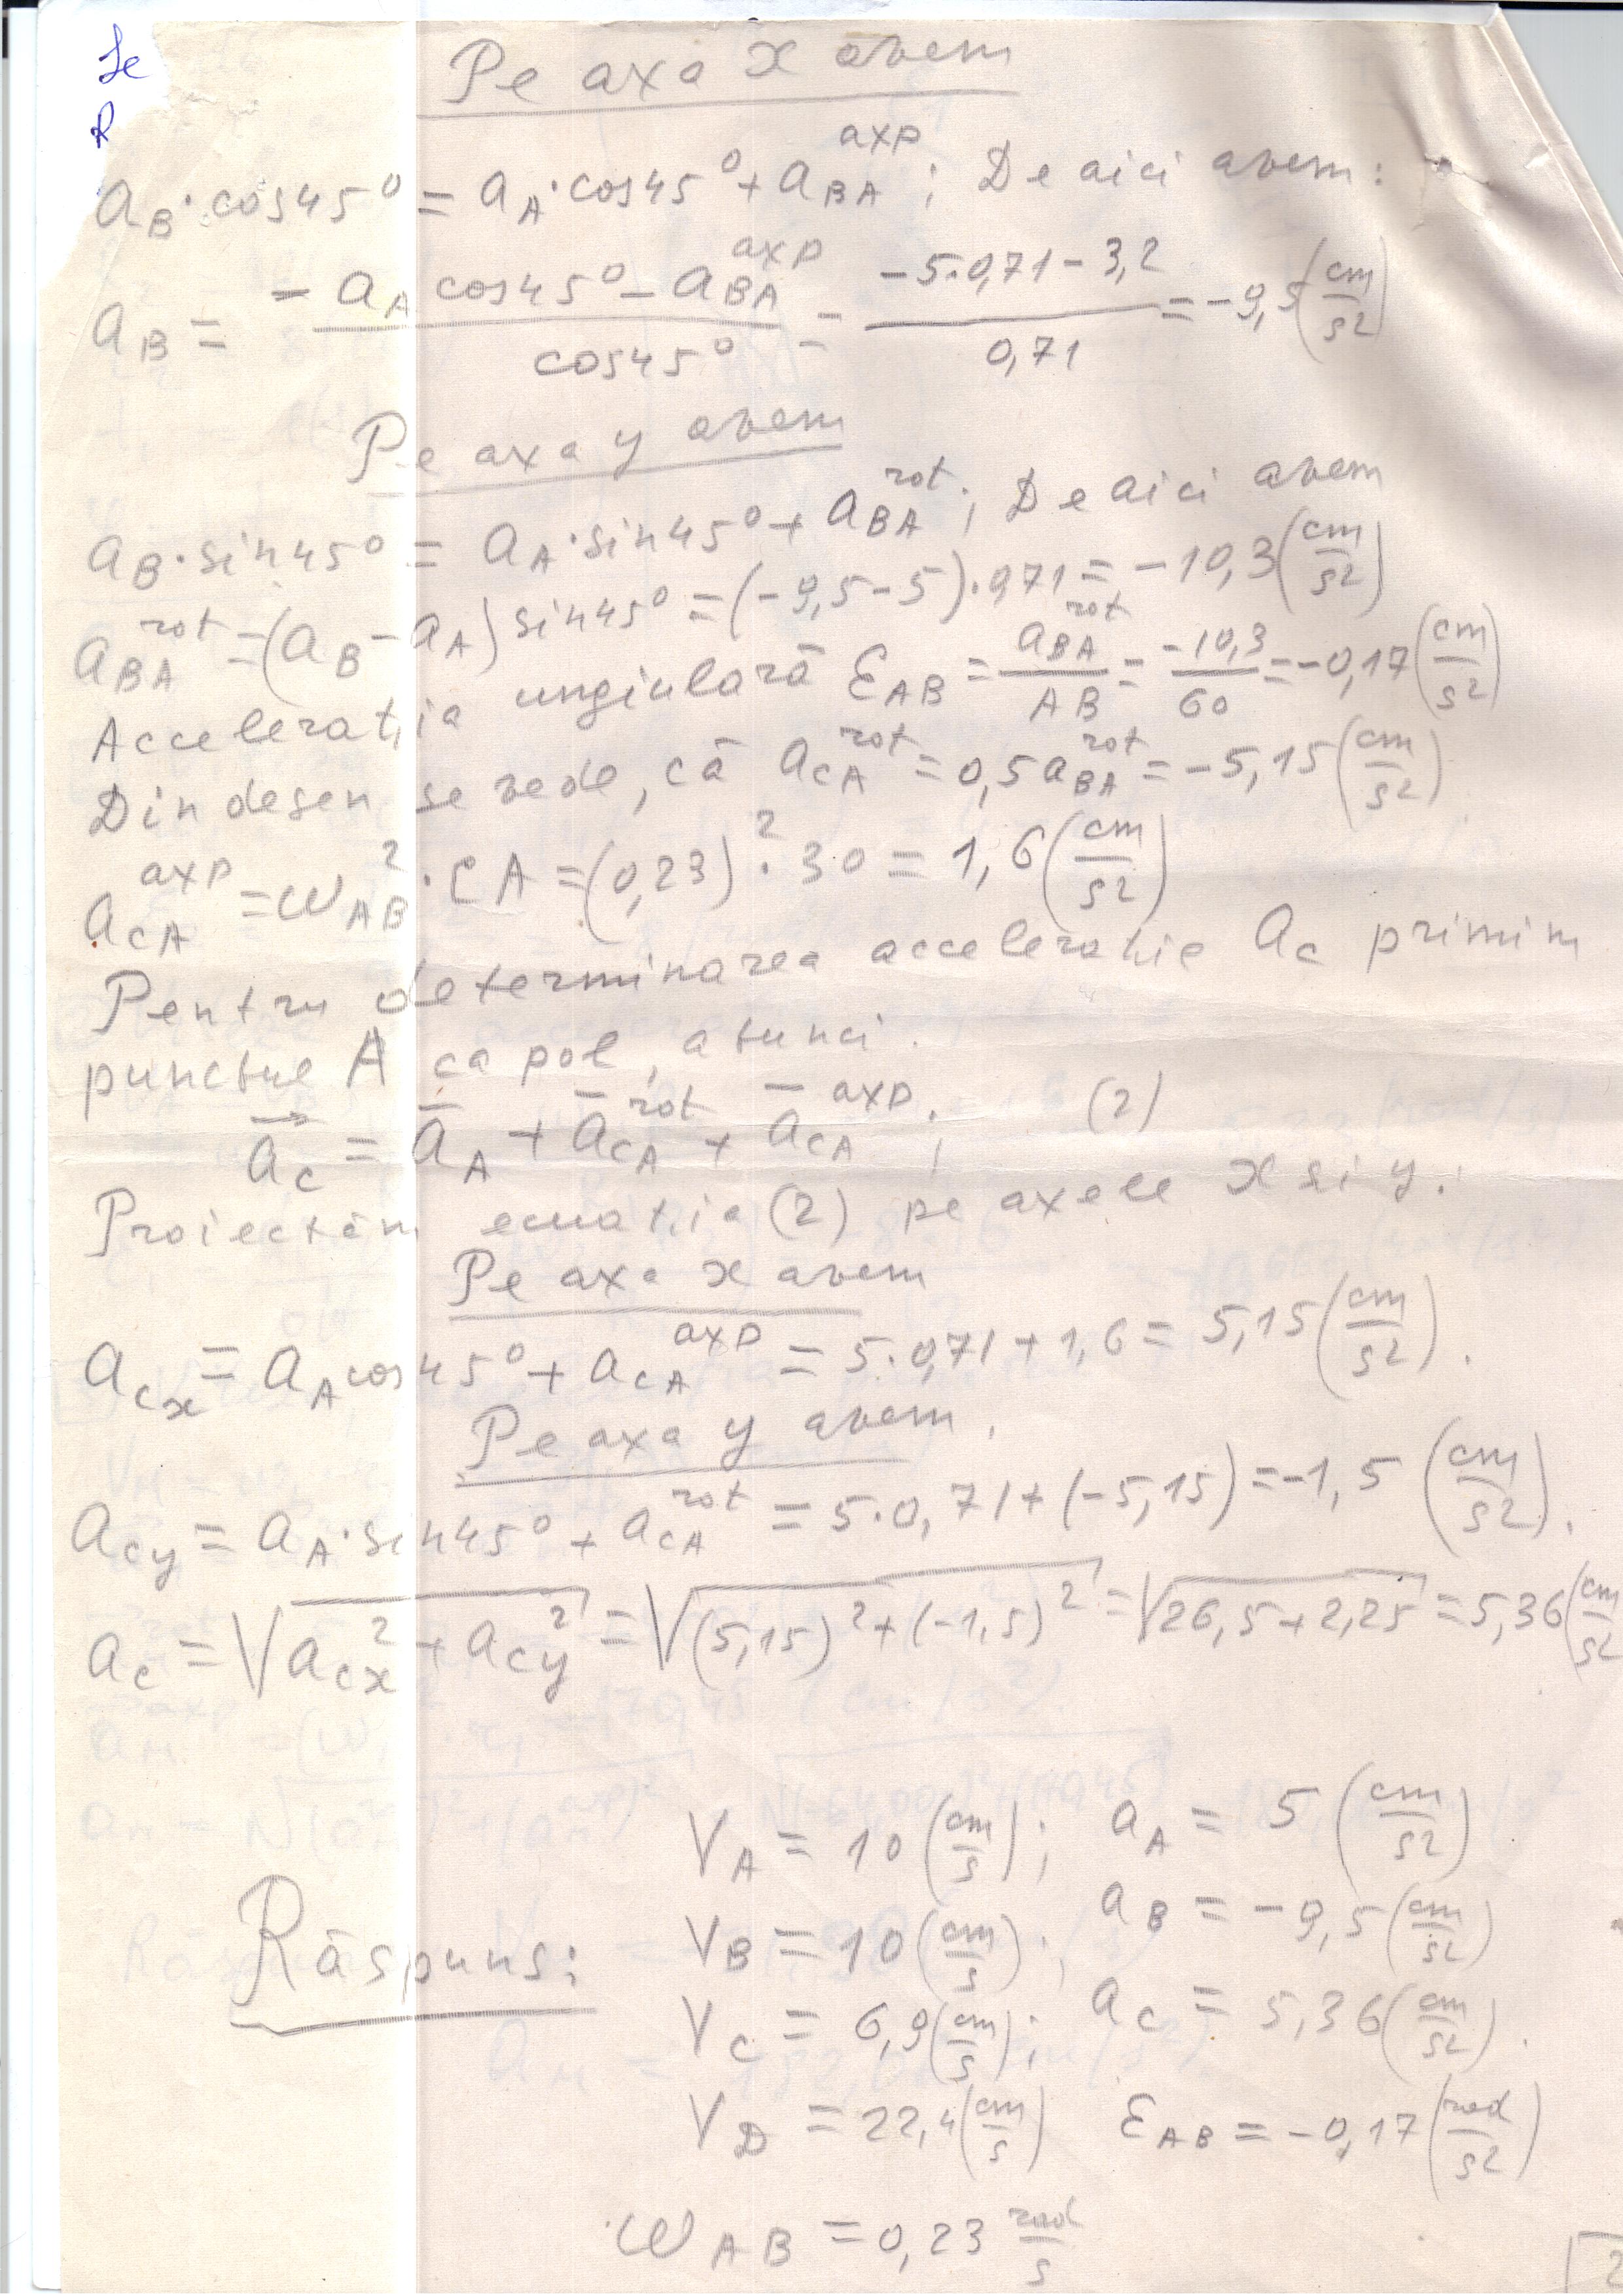 Le
R
Pe axa x avem
a_B·cos45° = a_A·cos45° + a_BA^axp ; De aici avem:
a_B = (-a_A cos45° - a_BA^axp)/(cos45°) = (-5·0,71 - 3,2)/(0,71) = -9,5 (cm/s²)
Pe axa y avem
a_B·sin45° = a_A·sin45° + a_BA^rot ; De aici avem
a_BA^rot = (a_B - a_A) sin45° = (-9,5 - 5)·0,71 = -10,3 (cm/s²)
Acceleratia ungiulară ε_AB = a_BA^rot/AB = -10,3/60 = -0,17 (cm/s²)
Din desen se vede, că a_CA^rot = 0,5 a_BA^rot = -5,15 (cm/s²)
a_CA^axp = ω_AB²·CA = (0,23)²·30 = 1,6 (cm/s²)
Pentru determinarea acceleratie a_c primim
punctul A ca pol, atunci.
a_c = a_A + a_CA^rot + a_CA^axp ; (2)
Proiectăm ecuatia (2) pe axele x si y.
Pe axa x avem
a_cx = a_A cos45° + a_CA^axp = 5·0,71 + 1,6 = 5,15 (cm/s²).
Pe axa y avem.
a_cy = a_A·sin45° + a_CA^rot = 5·0,71 + (-5,15) = -1,5 (cm/s²).
a_c = √(a_cx² + a_cy²) = √((5,15)² + (-1,5)²) = √(26,5 + 2,25) = 5,36 (cm/s²
V_A = 10 (cm/s); a_A = 5 (cm/s²)
V_B = 10 (cm/s); a_B = -9,5 (cm/s²)
Răspuns:
V_C = 6,9 (cm/s); a_C = 5,36 (cm/s²).
V_D = 22,4 (cm/s) ε_AB = -0,17 (rad/s²)
ω_AB = 0,23 rad/s